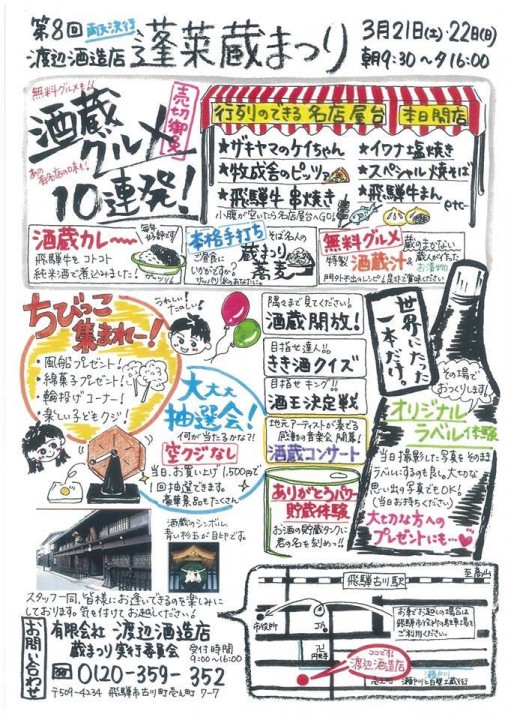 第8回 雨天決行
渡辺酒造店 蓬莱蔵まつり
3月21日(土)・22日(日)
朝9:30〜夕16:00
無料グルメも!!
酒蔵
グルメ
10連発!
売切御免
あの有名店の味も!
行列のできる 名店屋台 本日開店
★ザキヤマのケイちゃん
★牧成舎のピッツァ
★飛騨牛 串焼き
★イワナ塩焼き
★スペシャル焼そば
★飛騨牛まん
etc…
小腹が空いたら名店屋台へGO!
酒蔵カレ〜〜
毎年好評です
飛騨牛をコトコト
純米酒で煮込みました!
ガッツリ!
本格手打ち
そば名人の
ご昼食に
いかがですか?
蔵まつり
蕎麦
無料グルメ
特製 酒蔵汁
&
蔵のまかない
蔵人が仕込んだ
お漬物
ちびっこ
集まれー!
うれしい!
たのしい!
・風船プレゼント!
・綿菓子プレゼント!
・輪投げコーナー!
・楽しい子どもクジ!
隅々まで見てください!
酒蔵開放!
目指せ達人!!
きき酒クイズ
目指せキング!!
酒王決定戦
地元アーティストが奏でる
感動の音楽会 開幕!
酒蔵コンサート
ありがとうパワー
貯蔵体験
お酒の貯蔵タンクに
君の名を刻めっ!!
大大大
抽選会!
何が当たるかな?!
空クジなし
当日、お買い上げ1,500円で
1回抽選できます。
豪華景品もたくさん
世界にたった
一本だけ。
その場で
おつくりします!
オリジナル
ラベル体験
当日撮影した写真をそのまま
ラベルにするのも良し、大切な
思い出の写真でもOK!
(当日お持ちください)
大切な方への
プレゼントにも…
酒蔵のシンボル、
青い杉玉が目印です。
スタッフ一同、皆様にお逢いできるのを楽しみに
しております。気を付けてお越しください!
お問い合わせ
有限会社 渡辺酒造店
蔵まつり実行委員会
受付時間
9:00〜16:00
0120-359-352
〒509-4234 飛騨市古川町壱之町 7-7
飛騨古川駅
至高山
市役所
JA
卍
円光寺
お車でお越しの場合は
飛騨市役所の駐車場を
ご利用ください。
ココです!
渡辺酒造店
瀬戸川
瀬戸川と白壁土蔵街